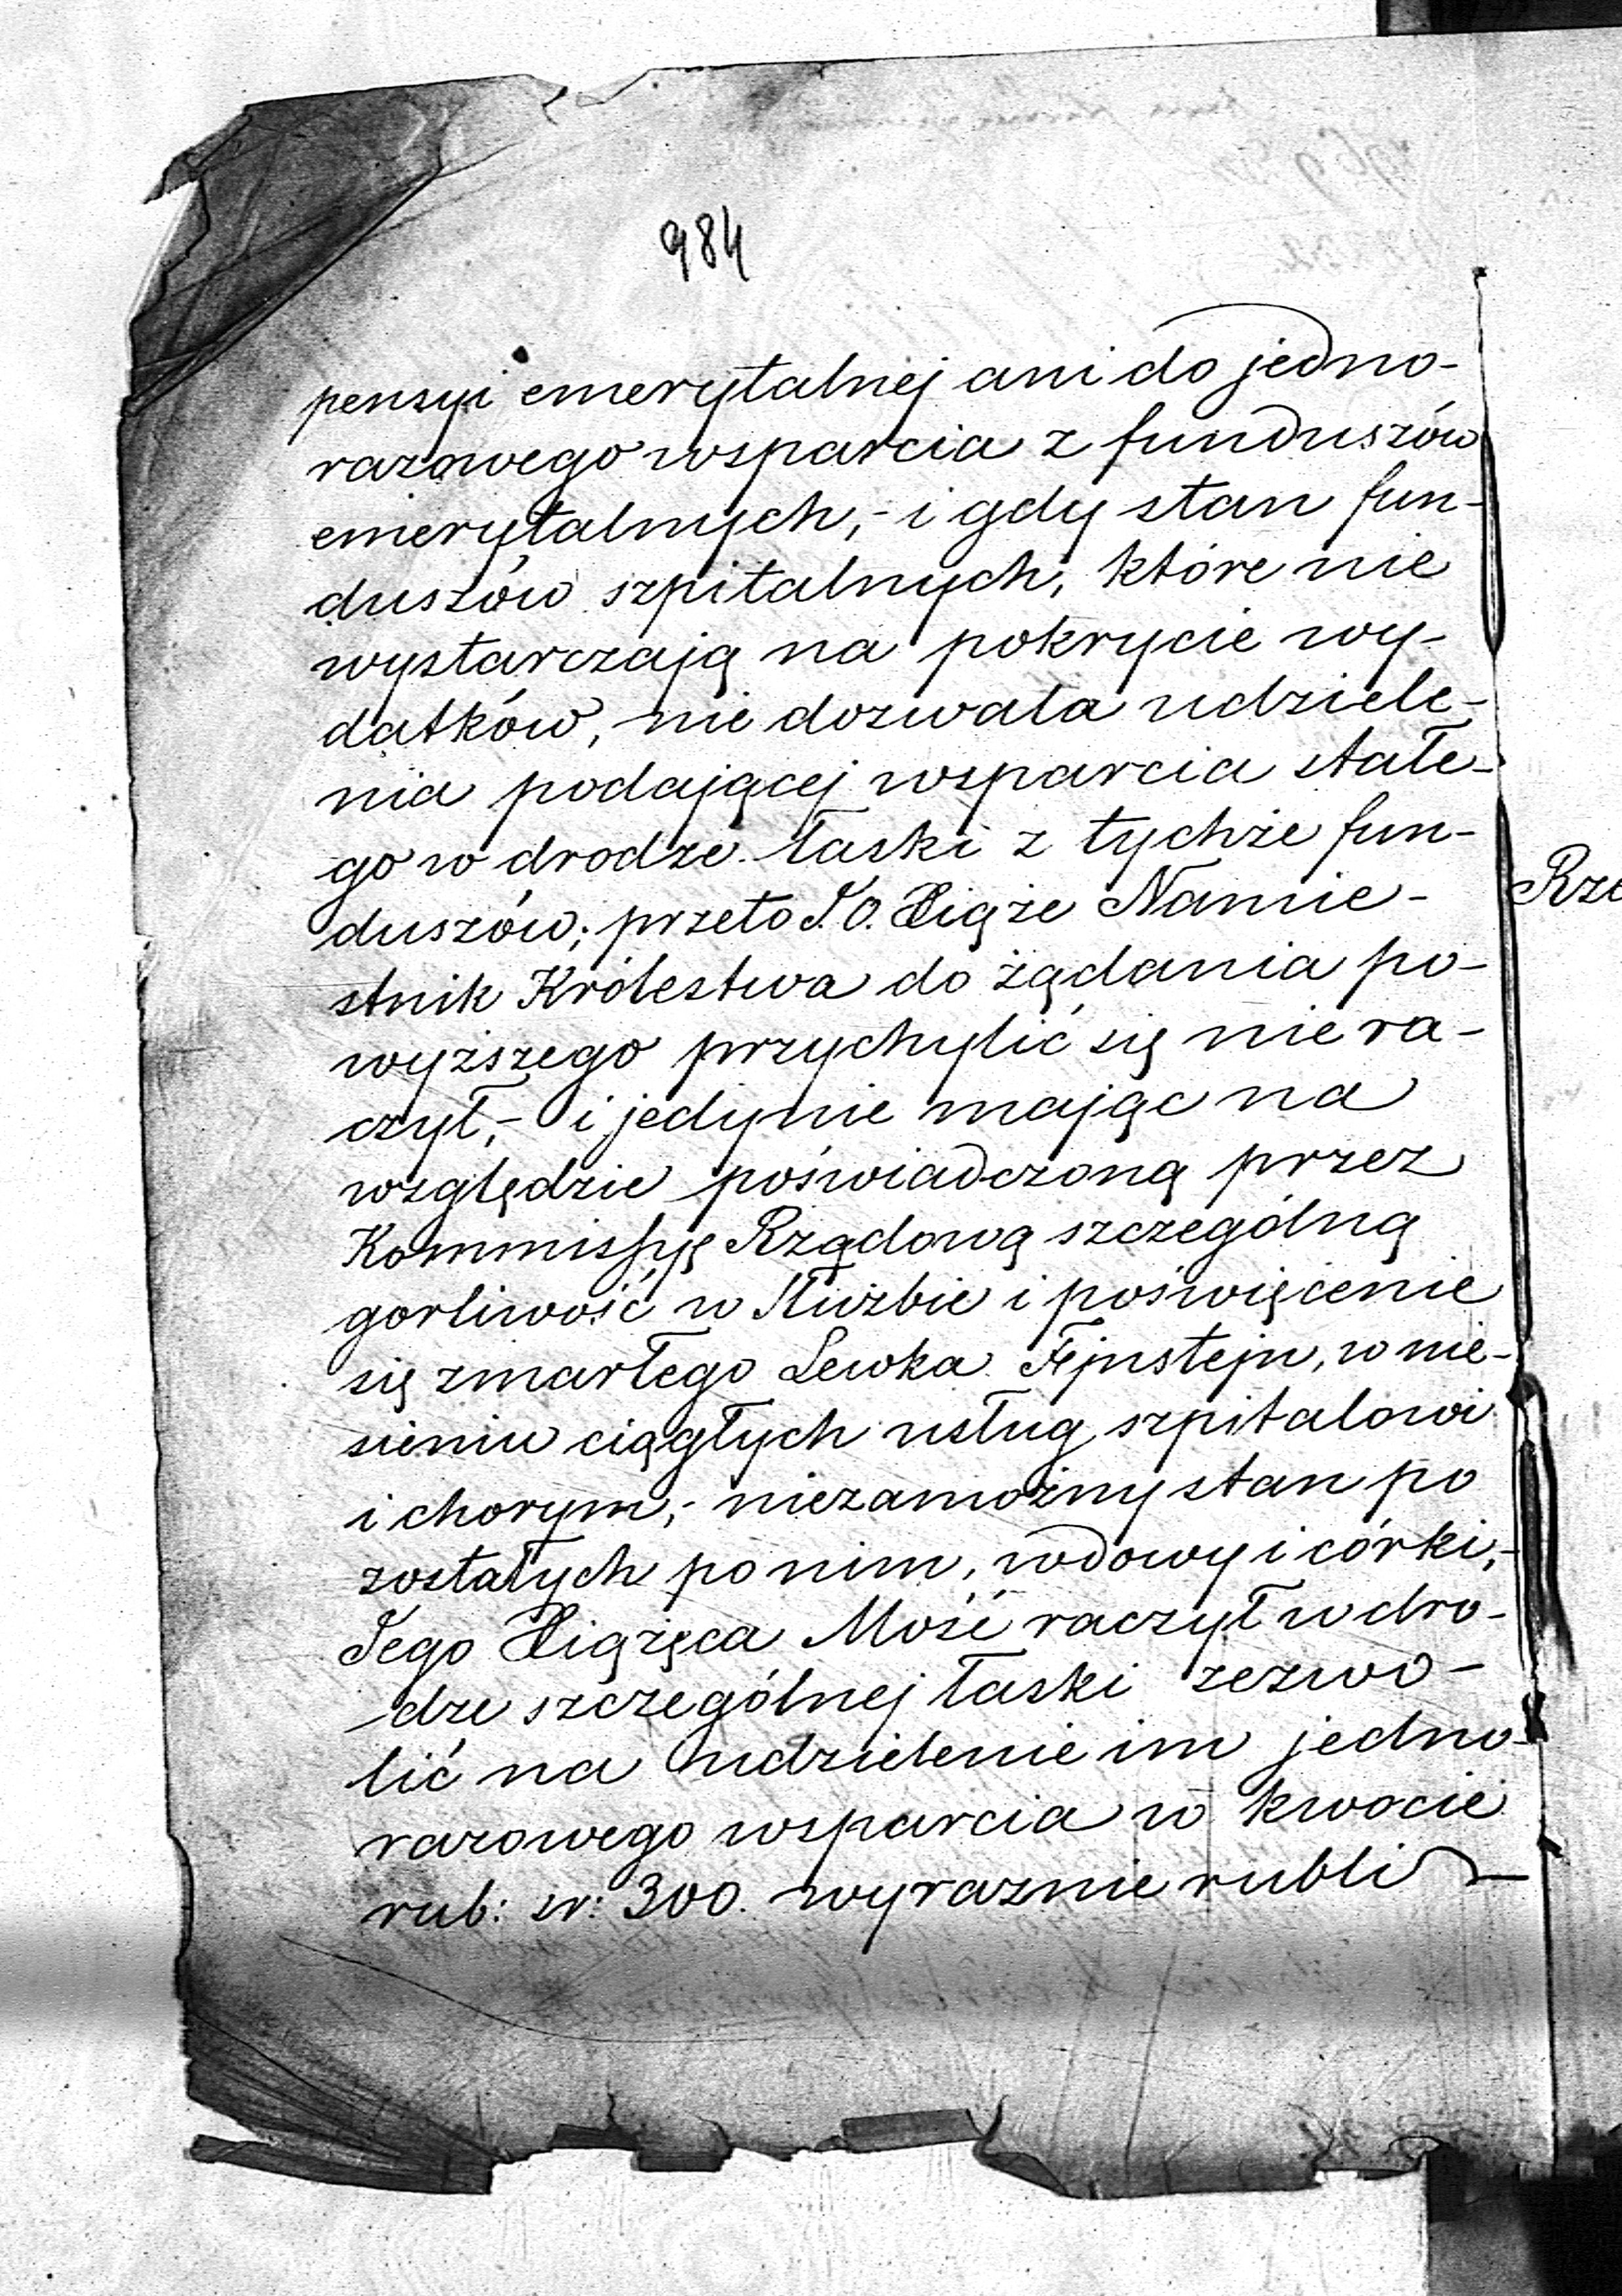 984
pensyi emerytalnej ani do jedno-
razowego wsparcia z funduszów
emerytalnych,- i gdy stan fun-
duszów szpitalnych, które nie
wystarczają na pokrycie wy-
datków, nie dozwala udziele-
nia podającej wsparcia stałe-
go w drodze łaski z tychże fun-
duszów; przeto J.O. Xiąże Namie-
stnik Królestwa do żądania po-
wyższego przychylić się nie ra-
czył,- i jedynie mając na
względzie poświadczoną przez
Kommissyę Rządową szczególną
gorliwość w służbie i poświęcenie
się zmarłego Lewka Fejnstejn, w nie-
sieniu ciągłych usług szpitalowi
i chorym,- niezamożny stan po
zostałych po nim, wdowy i córki,-
Jego Xiążęca Mość raczył w dro-
dze szczególnej łaski zezwo-
lić na udzielenie im jedno-
razowego wsparcia w kwocie
rub: sr: 300. wyraznie rubli